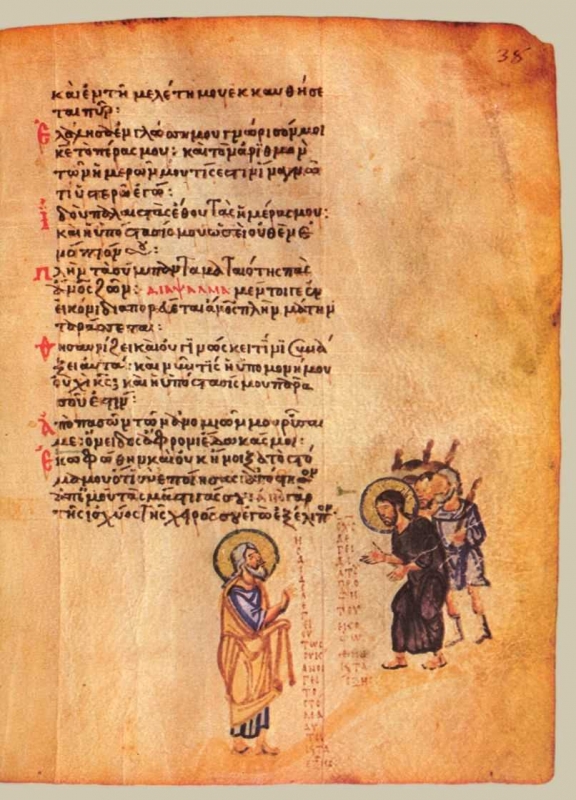 38
καὶ ἐν τῆ μελέτη μου ἐκκαυθήσε
ται πῦρ:
Ἐλάλησα ἐν γλώσση μου γνώρισόν μοι
κε τὸ πέρας μου: καὶ τὸν ἀριθμὸν
τῶν ἡμερῶν μου τίς ἐστιν ἵνα γνῶ
τί ὑστερῶ ἐγώ:
Ἰδοὺ παλαιστὰς ἔθου τὰς ἡμέρας μου:
καὶ ἡ ὑπόστασίς μου ὡσεὶ οὐθὲν ἐ
νώπιόν σου:
Πλὴν τὰ σύμπαντα ματαιότης πᾶς
ἄνος ζῶν: ΔΙΑΨΑΛΜΑ μέντοιγε ἐν
εἰκόνι διαπορεύεται ἄνος πλὴν μάτην
ταράσσεται:
Θησαυρίζει καὶ οὐ γινώσκει τίνι συνά
ξει αὐτά: καὶ νῦν τίς ἡ ὑπομονή μου
οὐχὶ κς καὶ ἡ ὑπόστασίς μου παρὰ
σοῦ ἐστιν:
Ἀπὸ πασῶν τῶν ἀνομιῶν μου ῥῦσαι
με: ὄνειδος ἄφρονι ἔδωκάς μοι:
Ἐκωφώθην καὶ οὐκ ἤνοιξα τὸ στό
μα μου ὅτι σὺ ἐποίησας: ἀπόστησον
ἀπ' ἐμοῦ τὰς μάστιγάς σου: ἀπὸ γὰρ
τῆς ἰσχύος τῆς χειρός σου ἐγὼ ἐξέλιπον